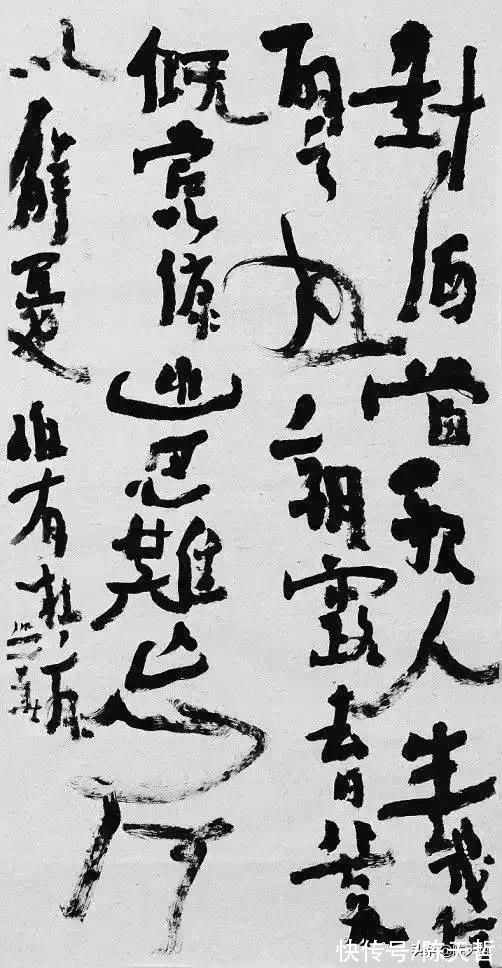 對酒當歌人生幾何
譬如朝露去日苦多
慨當以慷幽思難忘何
以解憂唯有杜康
快传号/陈天哲